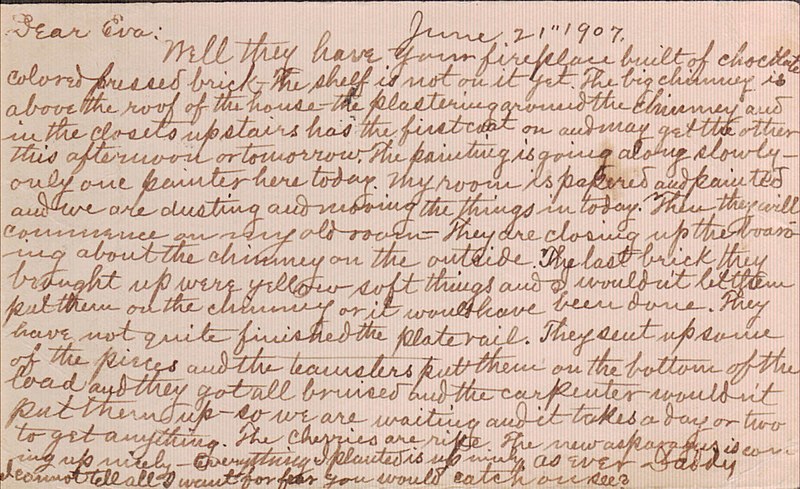 June 21" 1907.
Dear Eva:
Well they have your fireplace built of chocolate
colored pressed brick - The shelf is not on it yet. The big chimney is
above the roof of the house - the plastering around the chimney and
in the closets upstairs has the first coat on and may get the other
this afternoon or tomorrow. The painting is going along slowly -
only one painter here today. My room is papered and painted
and we are dusting and moving the things in today. Then they will
commence on my old room - They are closing up the board
ing about the chimney on the outside. The last brick they
brought up were yellow soft things and I wouldn't let them
put them on the chimney or it would have been done. They
have not quite finished the plate rail. They sent up some
of the pieces and the teamsters put them on the bottom of the
load and they got all bruised and the carpenter wouldn't
put them up - so we are waiting and it takes a day or two
to get anything. The cherries are ripe. The new asparagus is com
ing up nicely - Everything I planted is up nicely as ever - Daddy
I cannot tell all I want for fear you would catch on see?